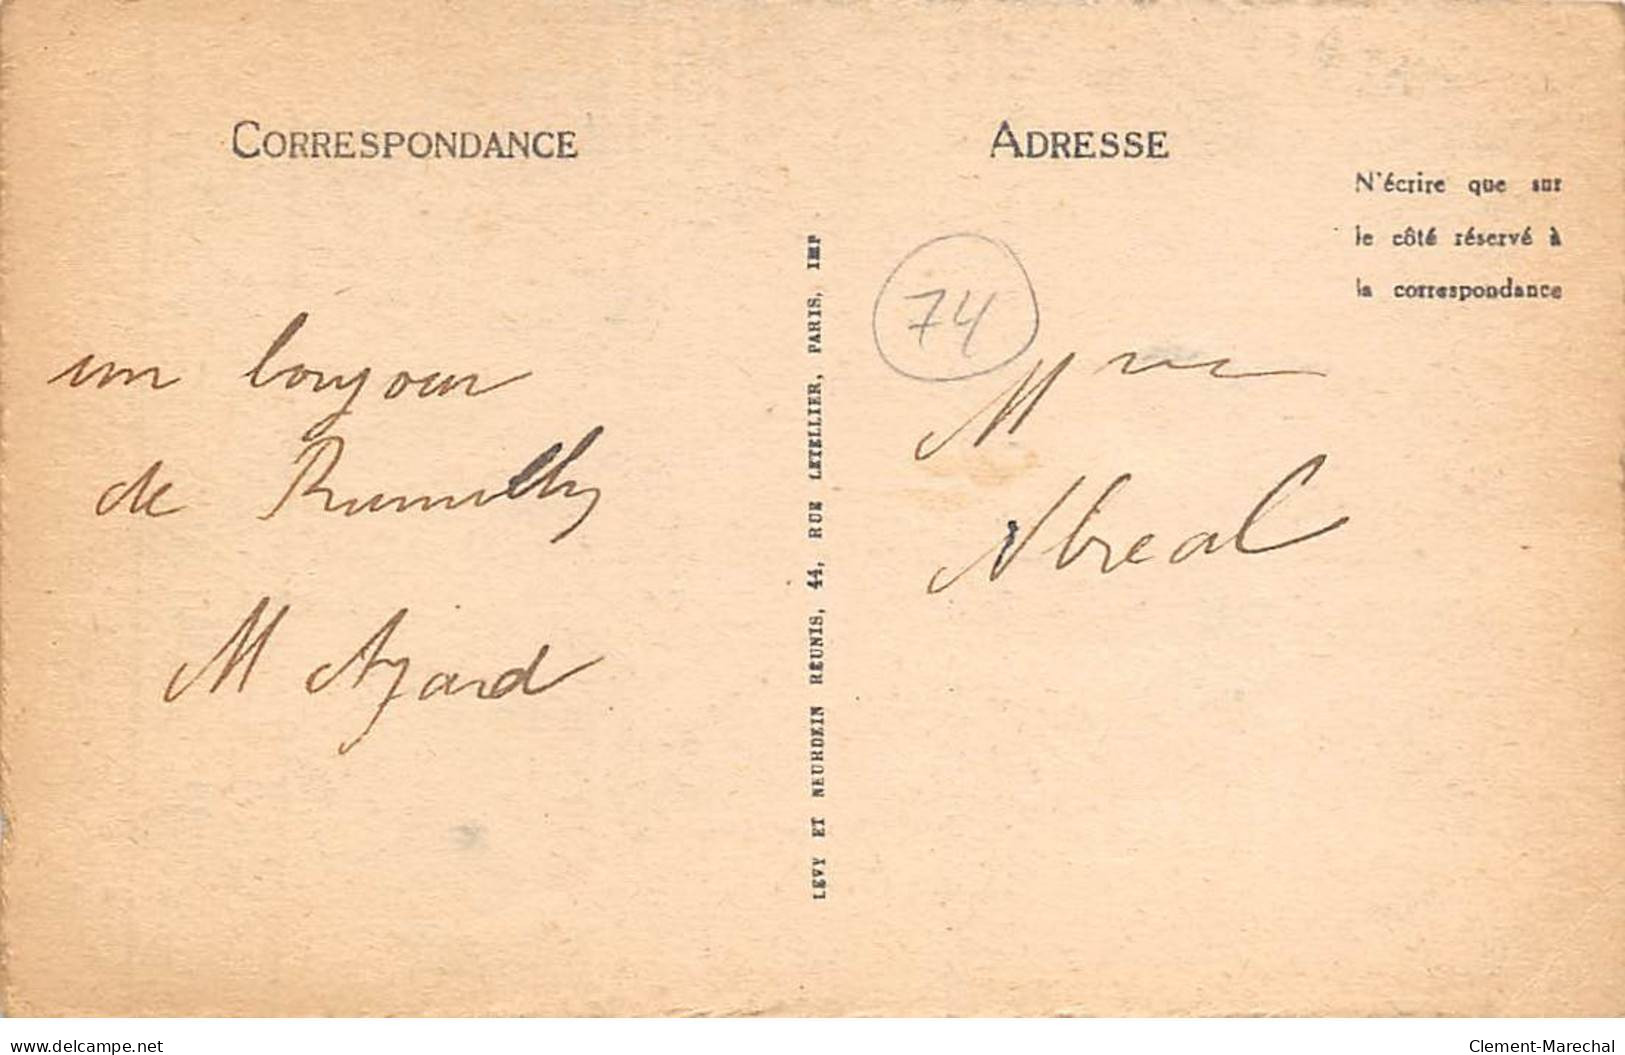 CORRESPONDANCE
un bonjour
de Rumilly
M Azard
LEVY ET NEURDEIN RÉUNIS, 44, RUE LETELLIER, PARIS, IMP
ADRESSE
N'écrire que sur
le côté réservé à
la correspondance
74
Mme
delcampe.net
Clement-Marechal